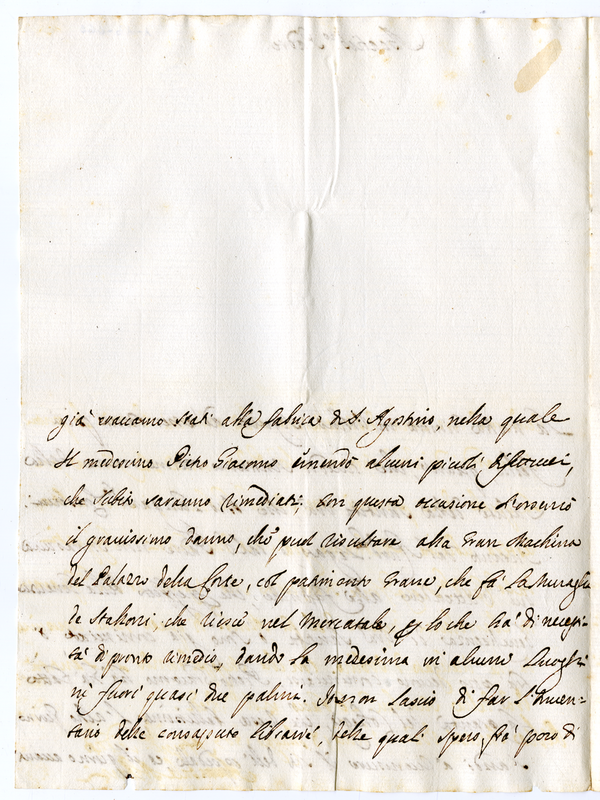 già eravamo stati alla fabrica di S. Agostino, nella quale
Il medesimo Pietro Giacomo emendò alcuni piccoli discorci,
che subito saranno rimediati; con questa occasione osservò
il gravissimo danno, che può risultare alla Gran Machina
del Palazzo della Corte, col patimento grave, che fà la Muraglia
de Stalloni, che riesce nel Mercatale, lo che hà di necessi-
tà di pronto rimedio, dando la medesima in alcuni Luoghi
in fuori quasi due palmi. Io non lascio di far l'Inven-
tario delle consapute librarie, delle quali spero frà poco di